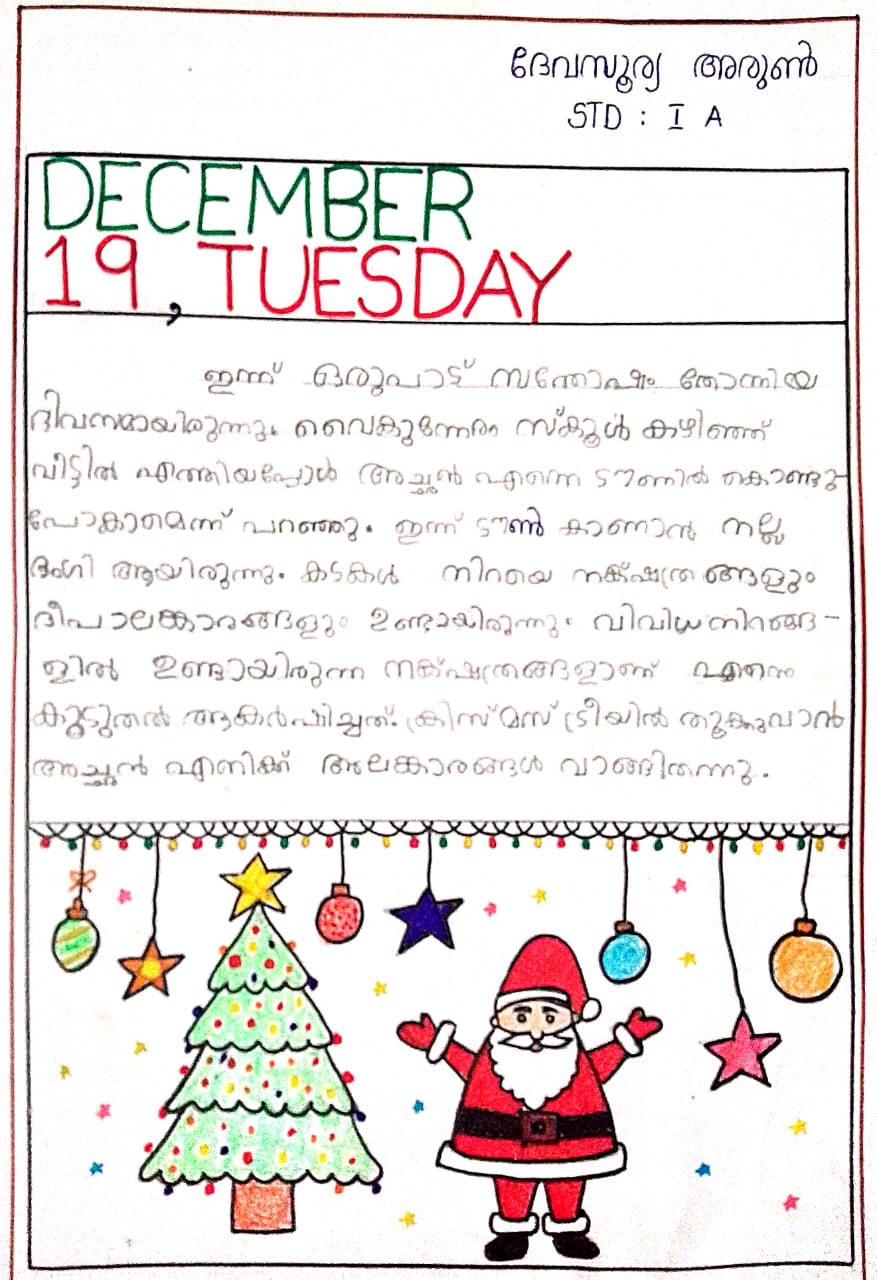 ദേവസൂര്യ അരുൺ
STD : I A
DECEMBER
19, TUESDAY
ഇന്ന് ഒരുപാട് സന്തോഷം തോന്നിയ
ദിവസമായിരുന്നു. വൈകുന്നേരം സ്കൂൾ കഴിഞ്ഞ്
വീട്ടിൽ എത്തിയപ്പോൾ അച്ഛൻ എന്നെ ടൗണിൽ കൊണ്ടു-
പോകാമെന്ന് പറഞ്ഞു. ഇന്ന് ടൗൺ കാണാൻ നല്ല
ഭംഗി ആയിരുന്നു. കടകൾ നിറയെ നക്ഷത്രങ്ങളും
ദീപാലങ്കാരങ്ങളും ഉണ്ടായിരുന്നു. വിവിധ നിറങ്ങ-
ളിൽ ഉണ്ടായിരുന്ന നക്ഷത്രങ്ങളാണ് എന്നെ
കൂടുതൽ ആകർഷിച്ചത്. ക്രിസ്മസ് ട്രീയിൽ തൂക്കുവാൻ
അച്ഛൻ എനിക്ക് അലങ്കാരങ്ങൾ വാങ്ങിതന്നു.